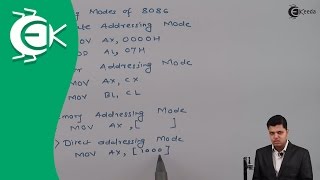 Modes of 8086
Addressing Mode
MOV AX, 0000H
AL, 07H
Addressing Mode
MOV AX, CX
MOV BL, CL
Addressing Mode
MOV AX, [ ]
Direct addressing Mode
MOV AX, [1000]
Ekeeda